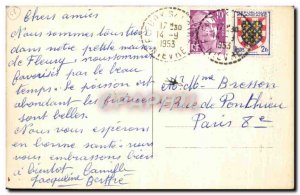 Chers amis
Nous sommes tous trois
dans notre petite maison
de Fleury, nous sommes
favorisé par le beau
temps. le poisson est
abondant les fraises
sont belles.
Nous vous espérons
en bonne santé nous
vous embrassons bien
à bientôt Camille
Jacqueline Berthe
14-9
1953
NIEVRE
1953
Mr et Mme Bresson
Rue de Ponthieu
Paris 8e